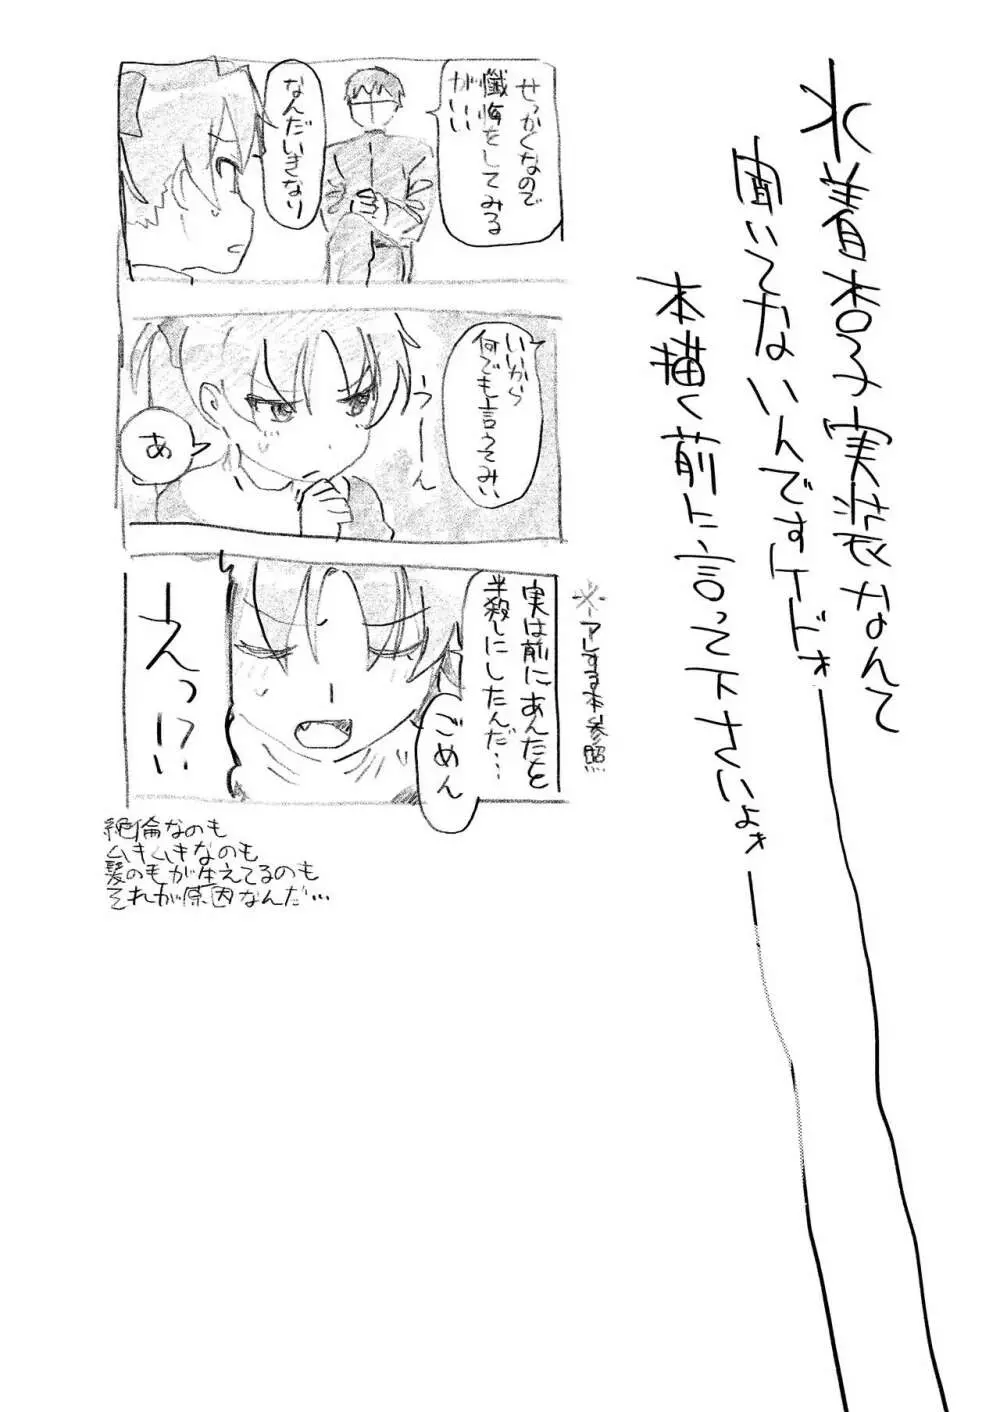 水着杏子実装なんて
聞いてないんですケドォ
本描く前に言って下さいよォ
せっかくなので
懺悔をしてみる
がいい
なんだいきなり
いいから
何でも言うてみい
うーん
あ
※アレする本参照
実は前にあんたを
半殺しにしたんだ…
ごめん
えっ!?い
絶倫なのも
ムキムキなのも
髪の毛が生えてるのも
それが原因なんだ…